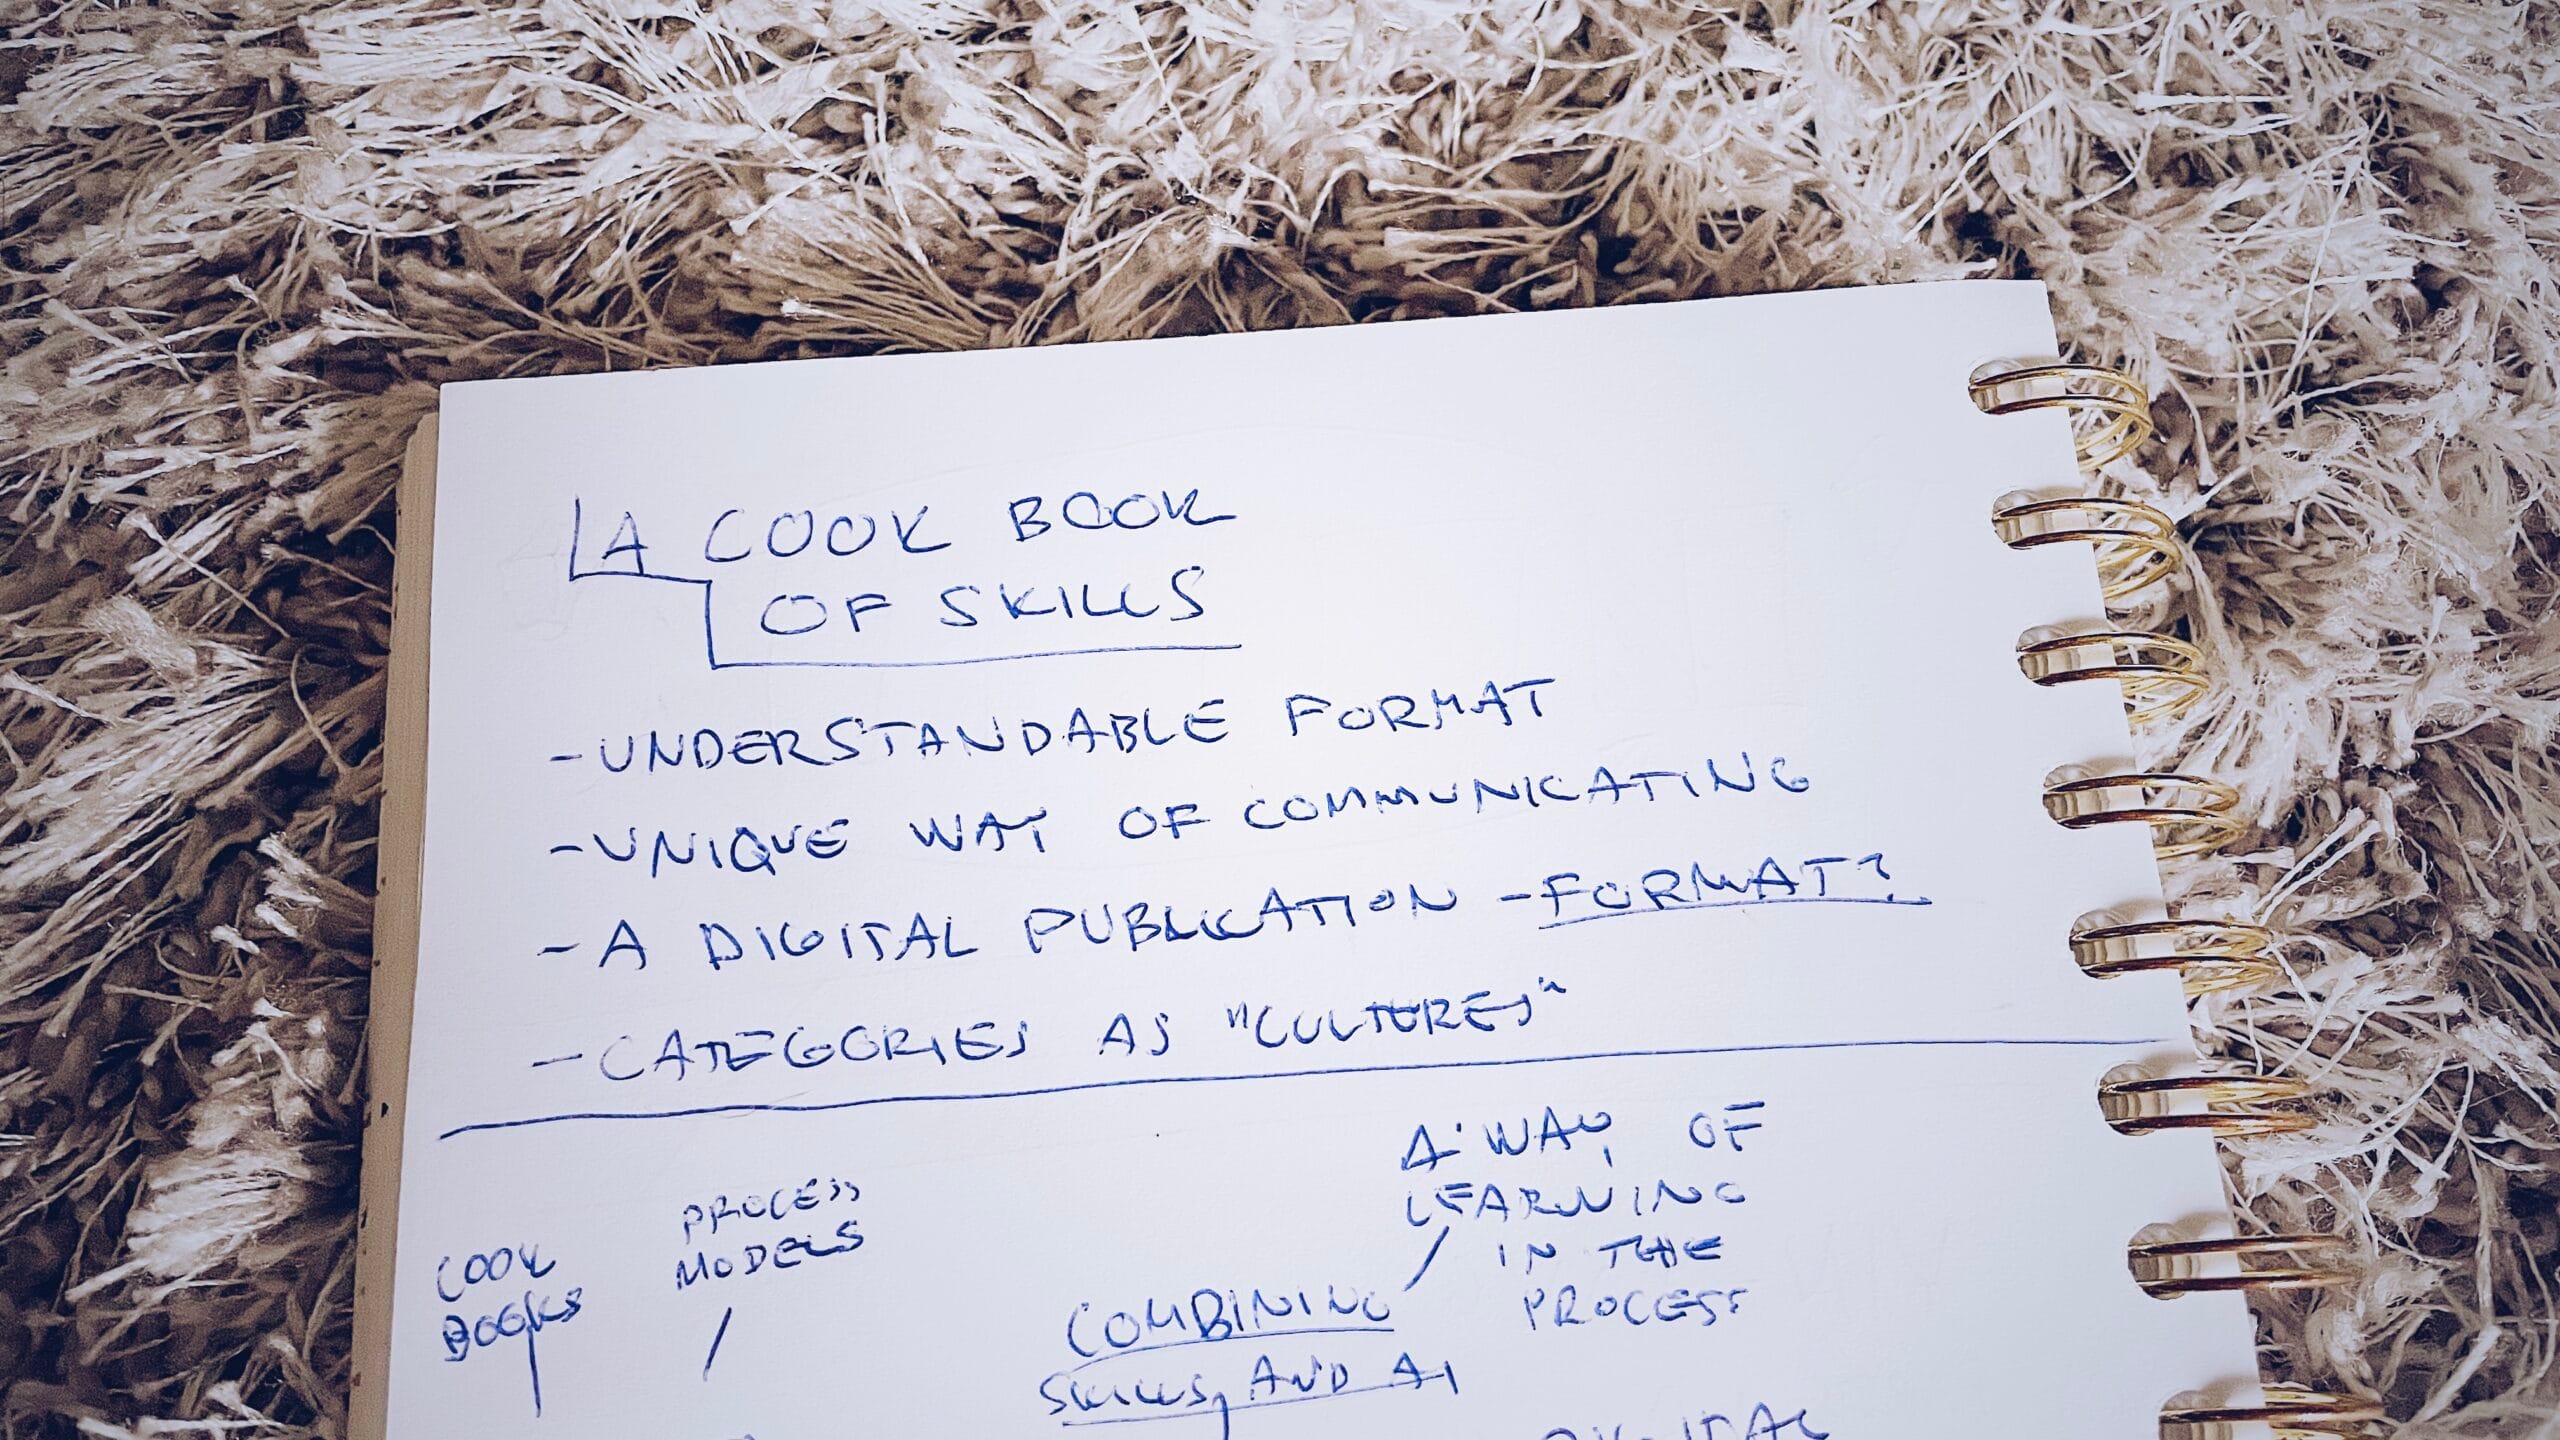 A COOK BOOK
OF SKILLS
- UNDERSTANDABLE FORMAT
- UNIQUE WAY OF COMMUNICATING
- A DIGITAL PUBLICATION - FORMAT?
- CATEGORIES AS "CULTURES"
COOK
BOOKS
PROCESS
MODELS
A WAY OF
LEARNING
IN THE
PROCESS
COMBINING
SKILLS AND AI
DIGITAL